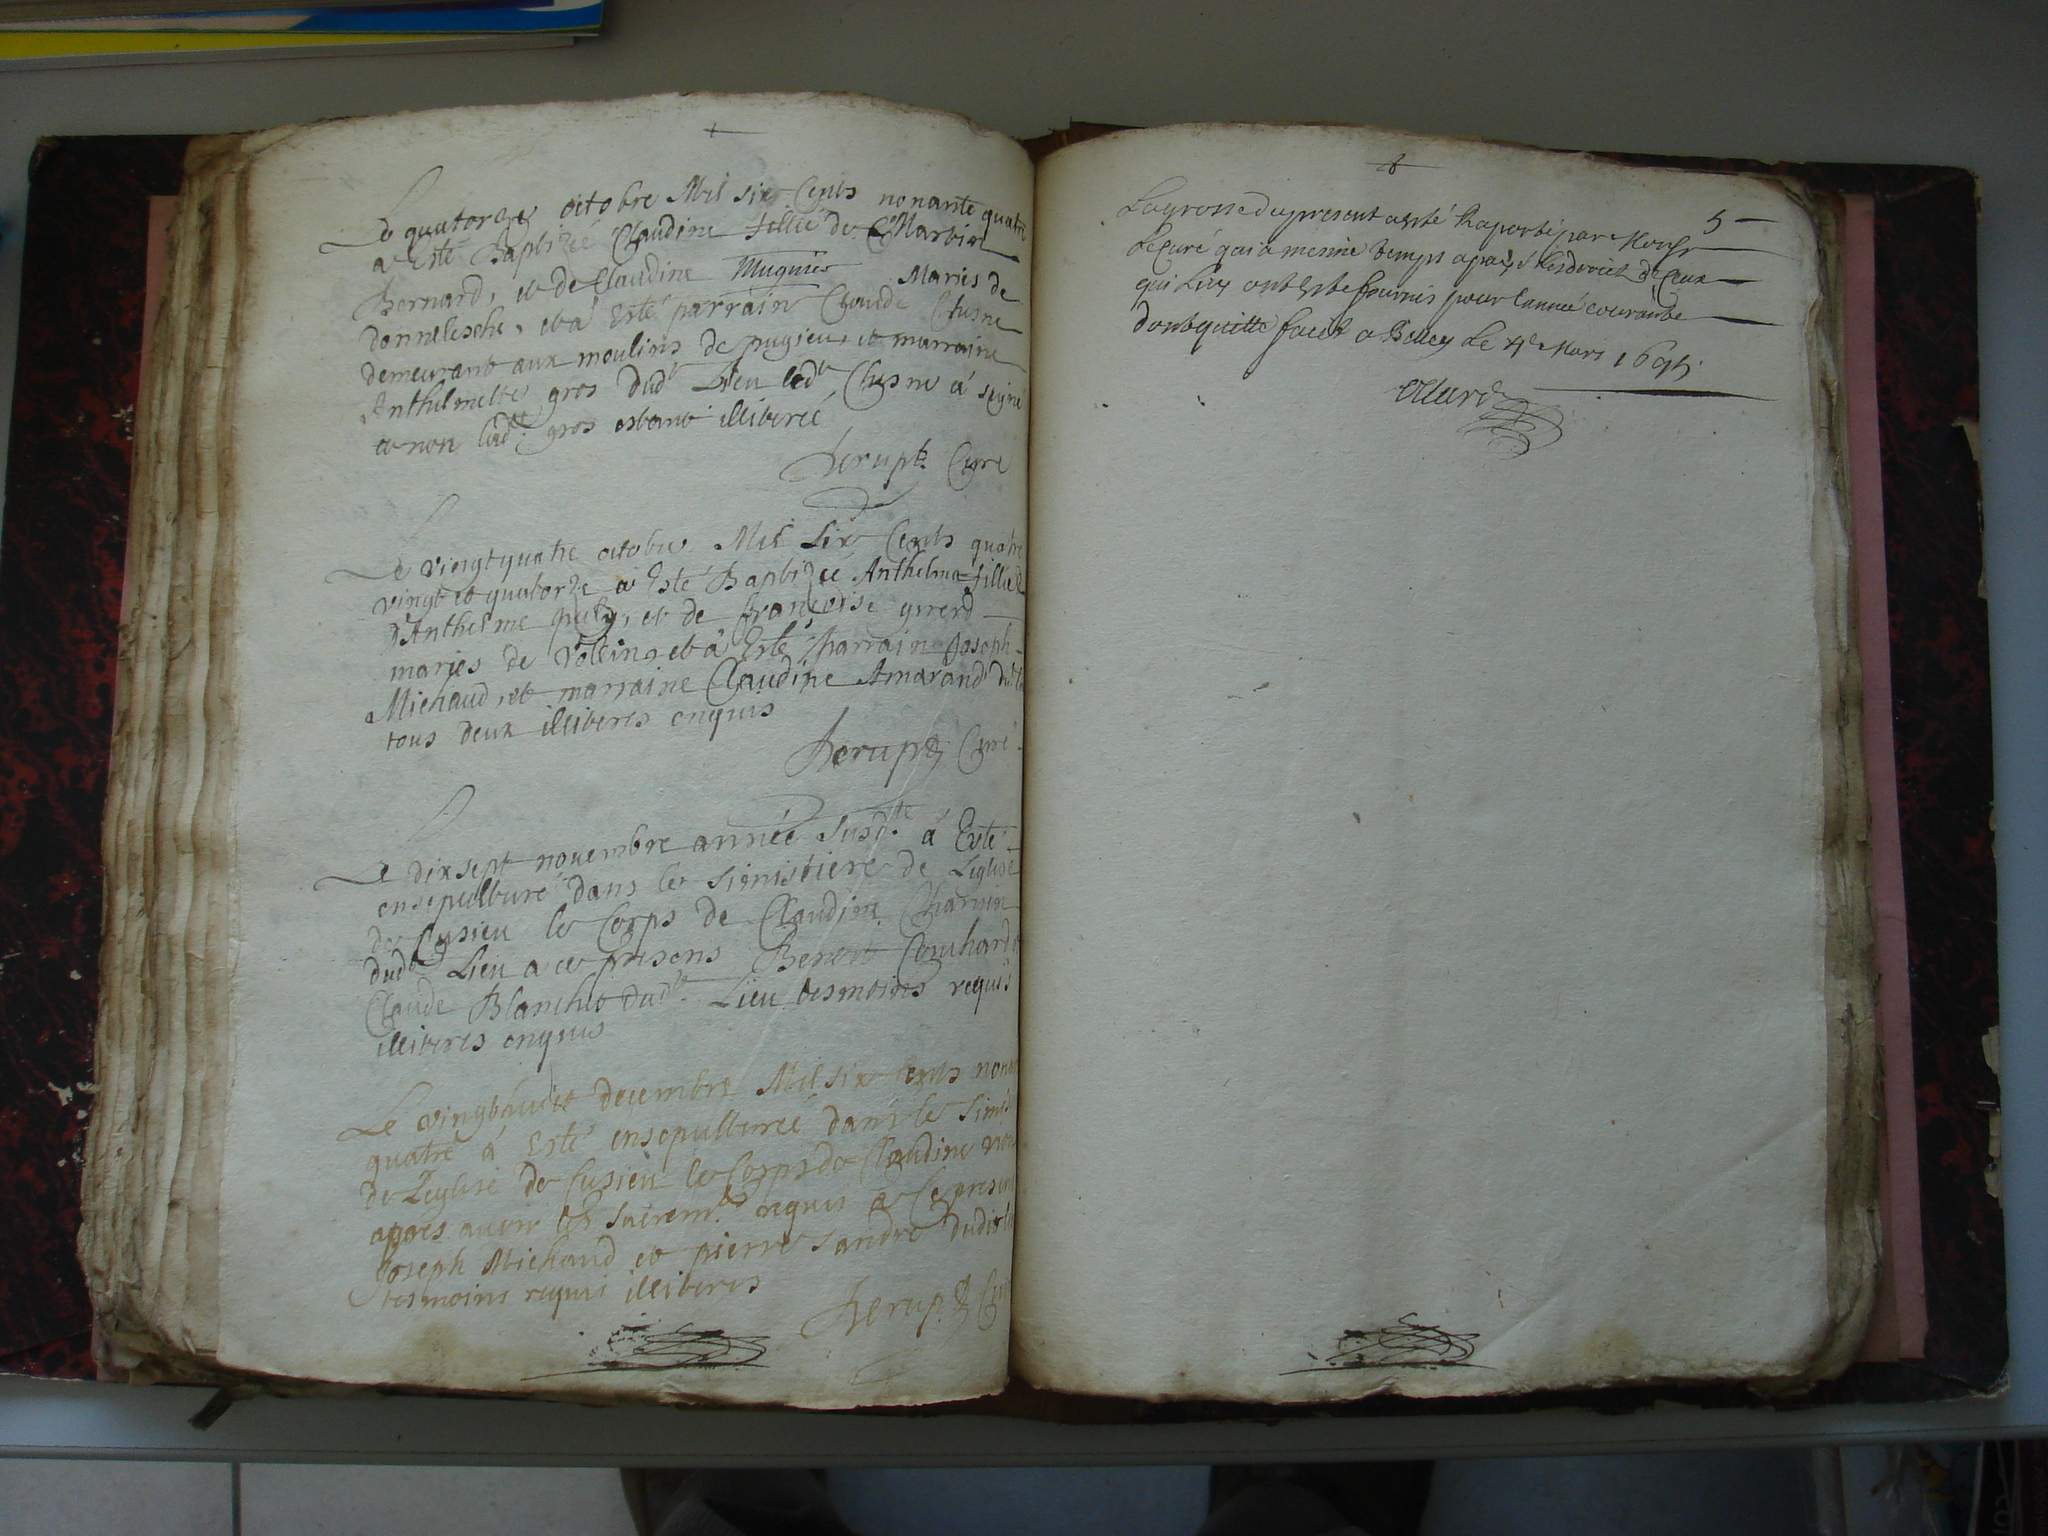 Le quatorze octobre Mil six Cents nonante quatre
a Esté Baptizée Claudine fillie de Martin
Bernard, et de Claudine Muguier Maries de
donnelesche, et a Esté parrain Claude Chesne
demeurant aux moulins de pugieu, et marraine
Anthelmette gros dudt Lieu ledt Chesne á signé
et non ladte gros estant illiterée
Curé
Le vingtquatre octobre Mil Six Cents quatre
vingt et quatorze a Esté Baptizée Anthelma fillie
d'Anthelme et de françoise
maries de et á Esté Parrain Joseph
Michaud, et marraine Claudine Amarand
tous deux illiteres enquis
Curé
Le dixsept novembre année Susdte á Esté
ensepulturé dans le simistiere de Leglise
de Cusieu le Corps de Claudine
dudt Lieu a ce presens Benoit
Claude Blanchet dudt Lieu tesmoins requis
illiteres enquis
Le vingthuict decembre Mil six cents
quatre á Esté ensepulturée dans le
de Leglise de Cusieu le Corps de Claudine
apres avoir les sacremts requis a Ce
Joseph Michaud et pierre Sandre dudit
tesmoins requis illiteres
5
La grosse du present a esté Raportée par Monsr
Le Curé qui a mesme temps a payé les droicts de Ceux
qui Luy ont este fournis pour l'année courante
dont quitte faict a Belley Le 4e Mars 1695